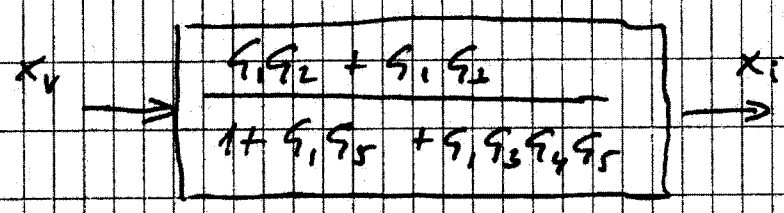 x_v
G₁G₂ + G₁G₂
1 + G₁G₅ + G₁G₃G₄G₅
x_i